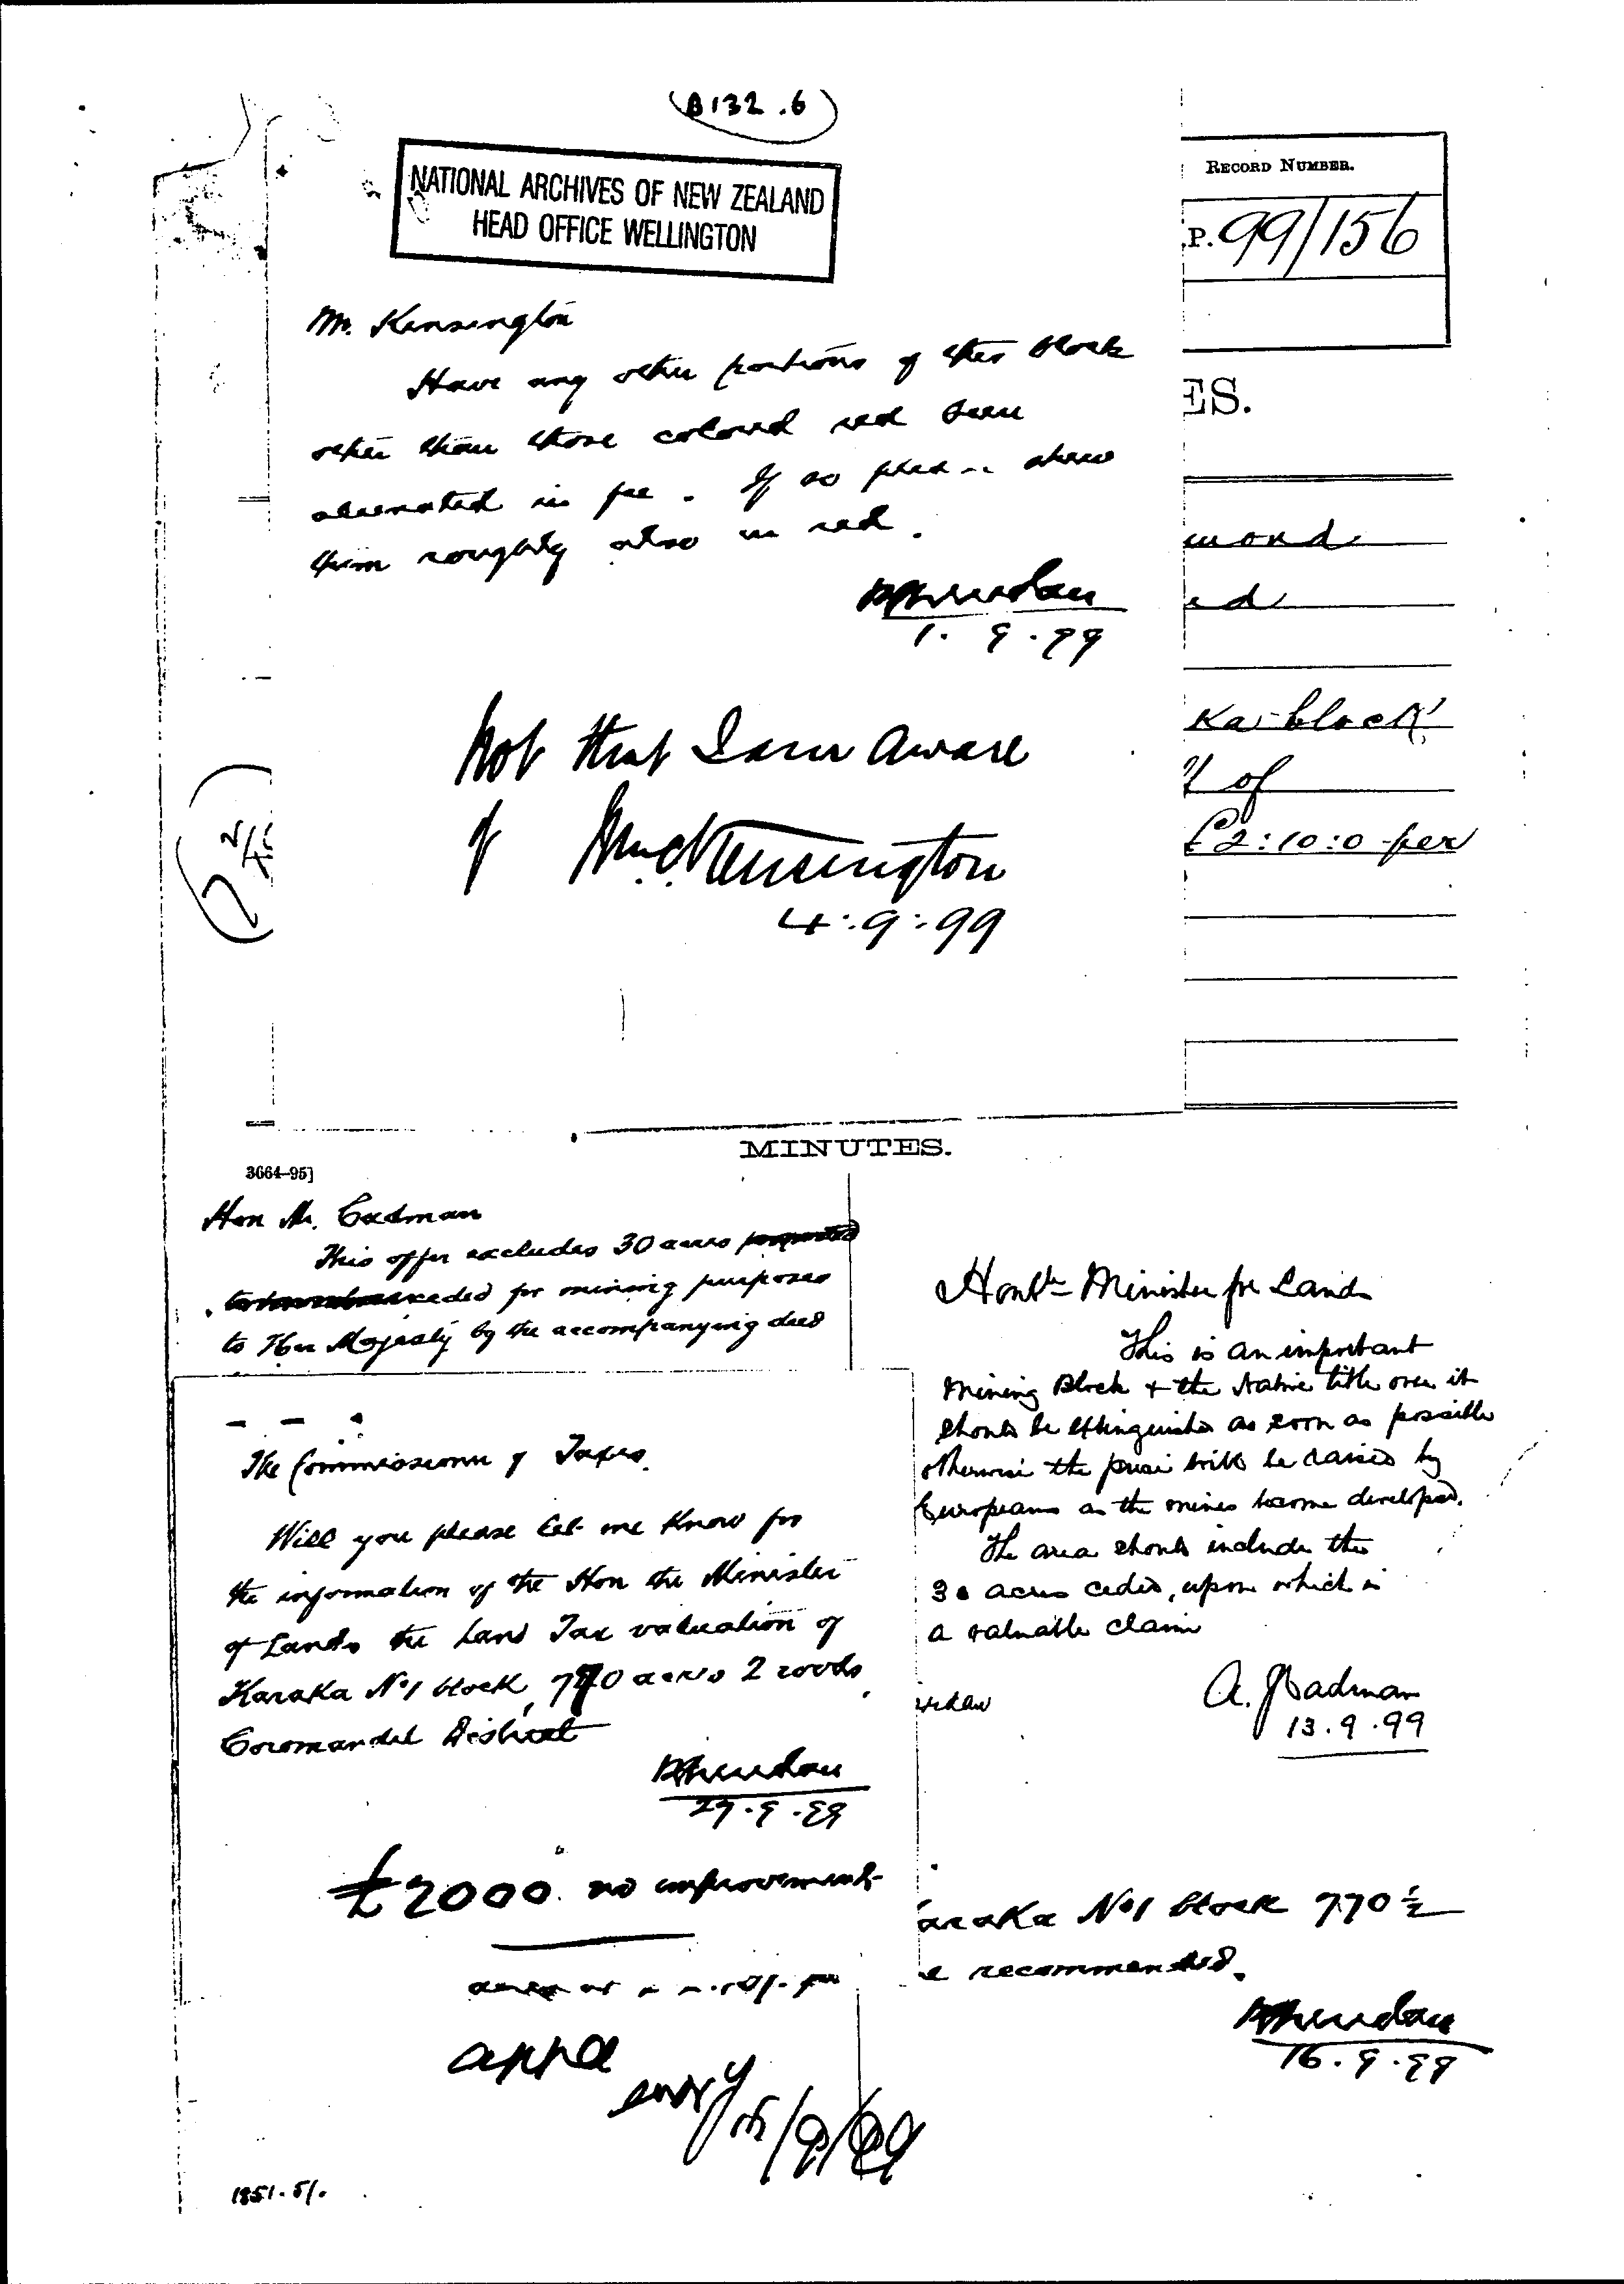 B132.6
NATIONAL ARCHIVES OF NEW ZEALAND
HEAD OFFICE WELLINGTON
RECORD NUMBER.
P. 99/156
Mr. Kensington
Have any other portions of this block
other than those colored red been
alienated in fee. If so please show
them roughly also in red.
1.9.99
Not that I am aware
of Wm. C. Kensington
4:9:99
ES.
mond
ed
ka block
of
£2:10:0 per
MINUTES.
3664–95]
Hon Mr. Cadman
This offer excludes 30 acres
ceded for mining purposes
to Her Majesty by the accompanying deed
The Commissioner of Taxes.
Will you please let me know for
the information of the Hon the Minister
of Lands the Land Tax valuation of
Karaka No 1 block, 770 acres 2 roods,
Coromandel District
27.9.99
£2000 no improvements
appd
1851.5/.
Honble Minister for Lands
This is an important
Mining Block + the Native title over it
should be extinguished as soon as possible
otherwise the price will be raised by
Europeans as the mines become developed.
The area should include the
30 acres ceded, upon which is
a valuable claim
A. J Cadman
13.9.99
araka No 1 block 770 ½
e recommended.
16.9.99